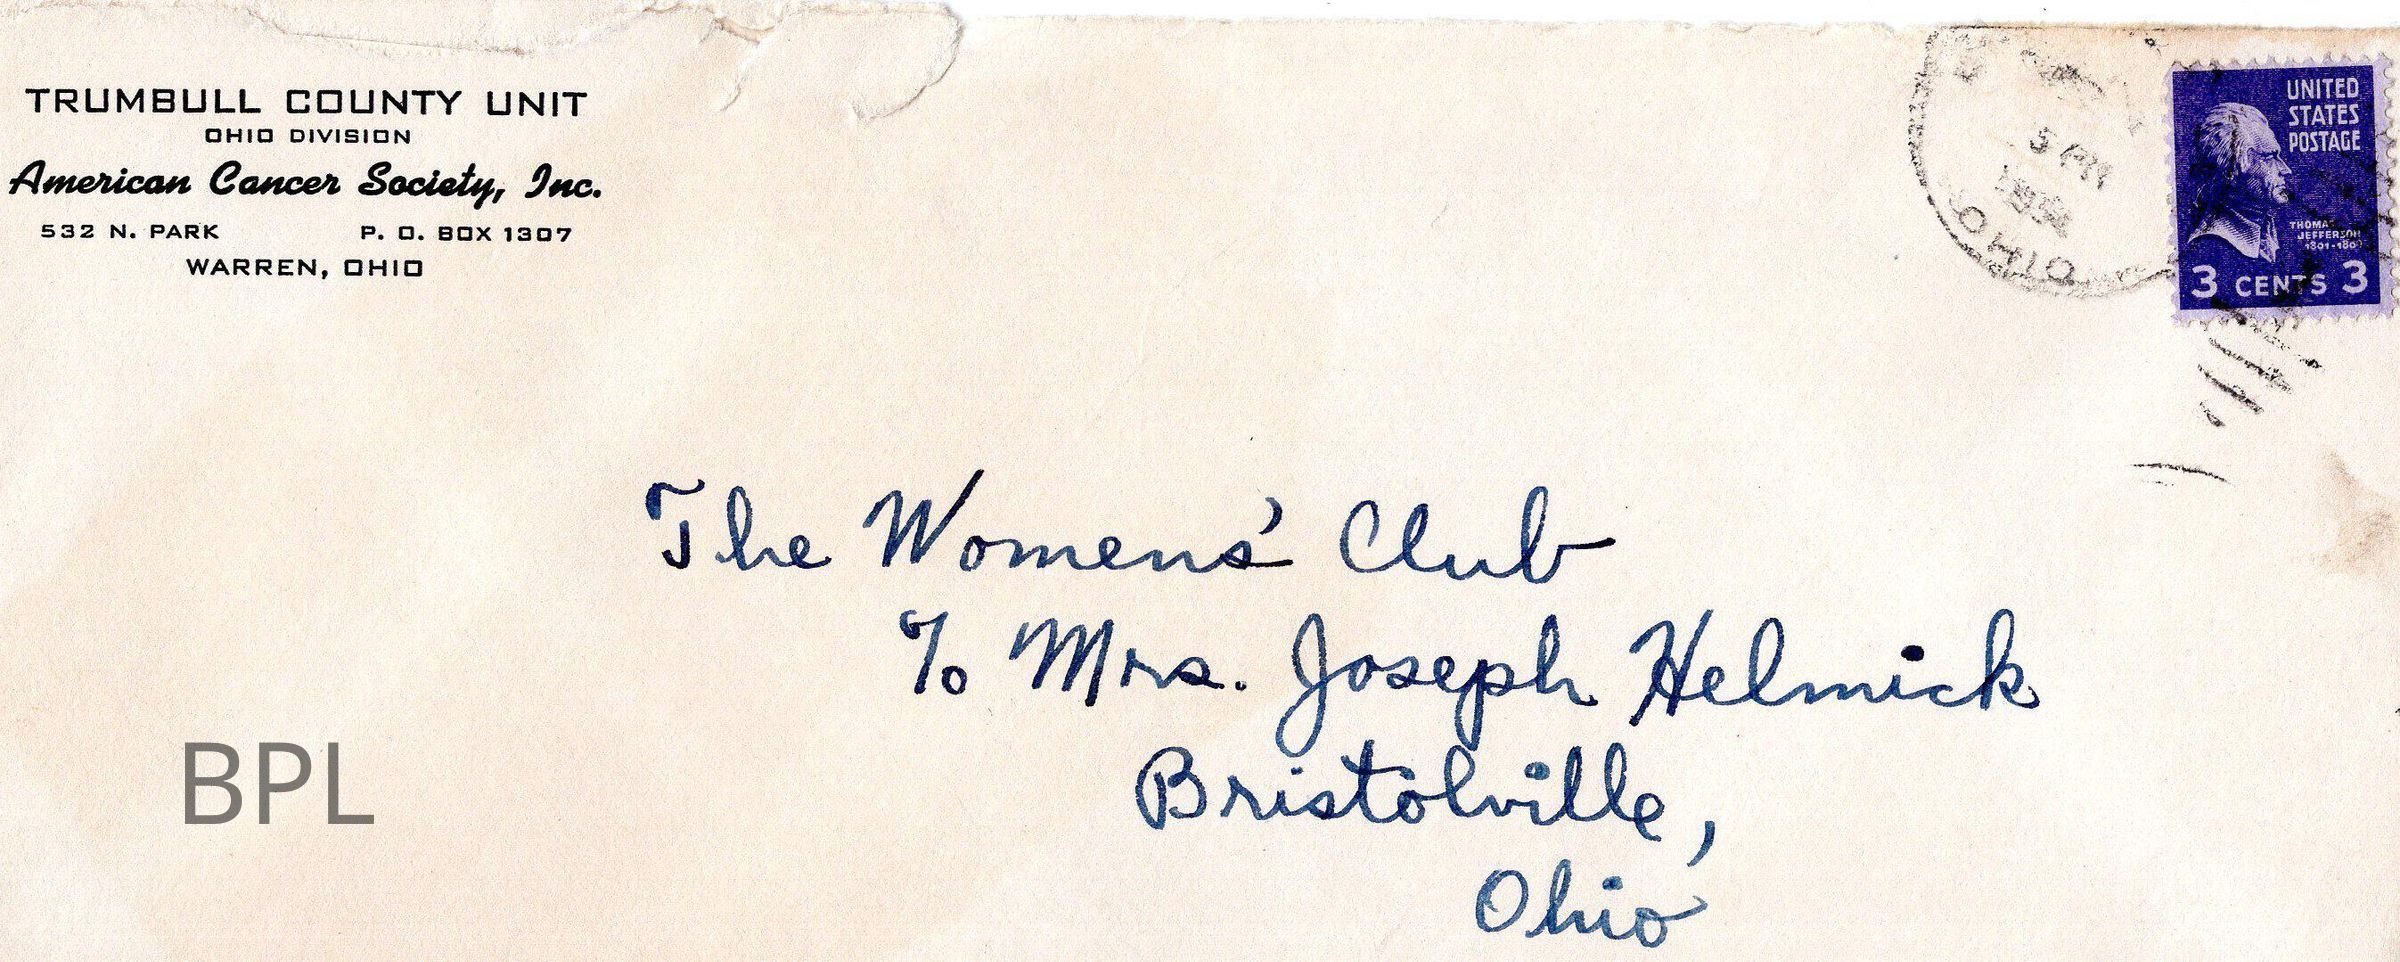 TRUMBULL COUNTY UNIT
OHIO DIVISION
American Cancer Society, Inc.
532 N. PARK P. O. BOX 1307
WARREN, OHIO
5 PM
OHIO
UNITED
STATES
POSTAGE
THOMAS
JEFFERSON
1801-1809
3 CENTS 3
The Womens' Club
% Mrs. Joseph Helmick
Bristolville,
Ohio
BPL